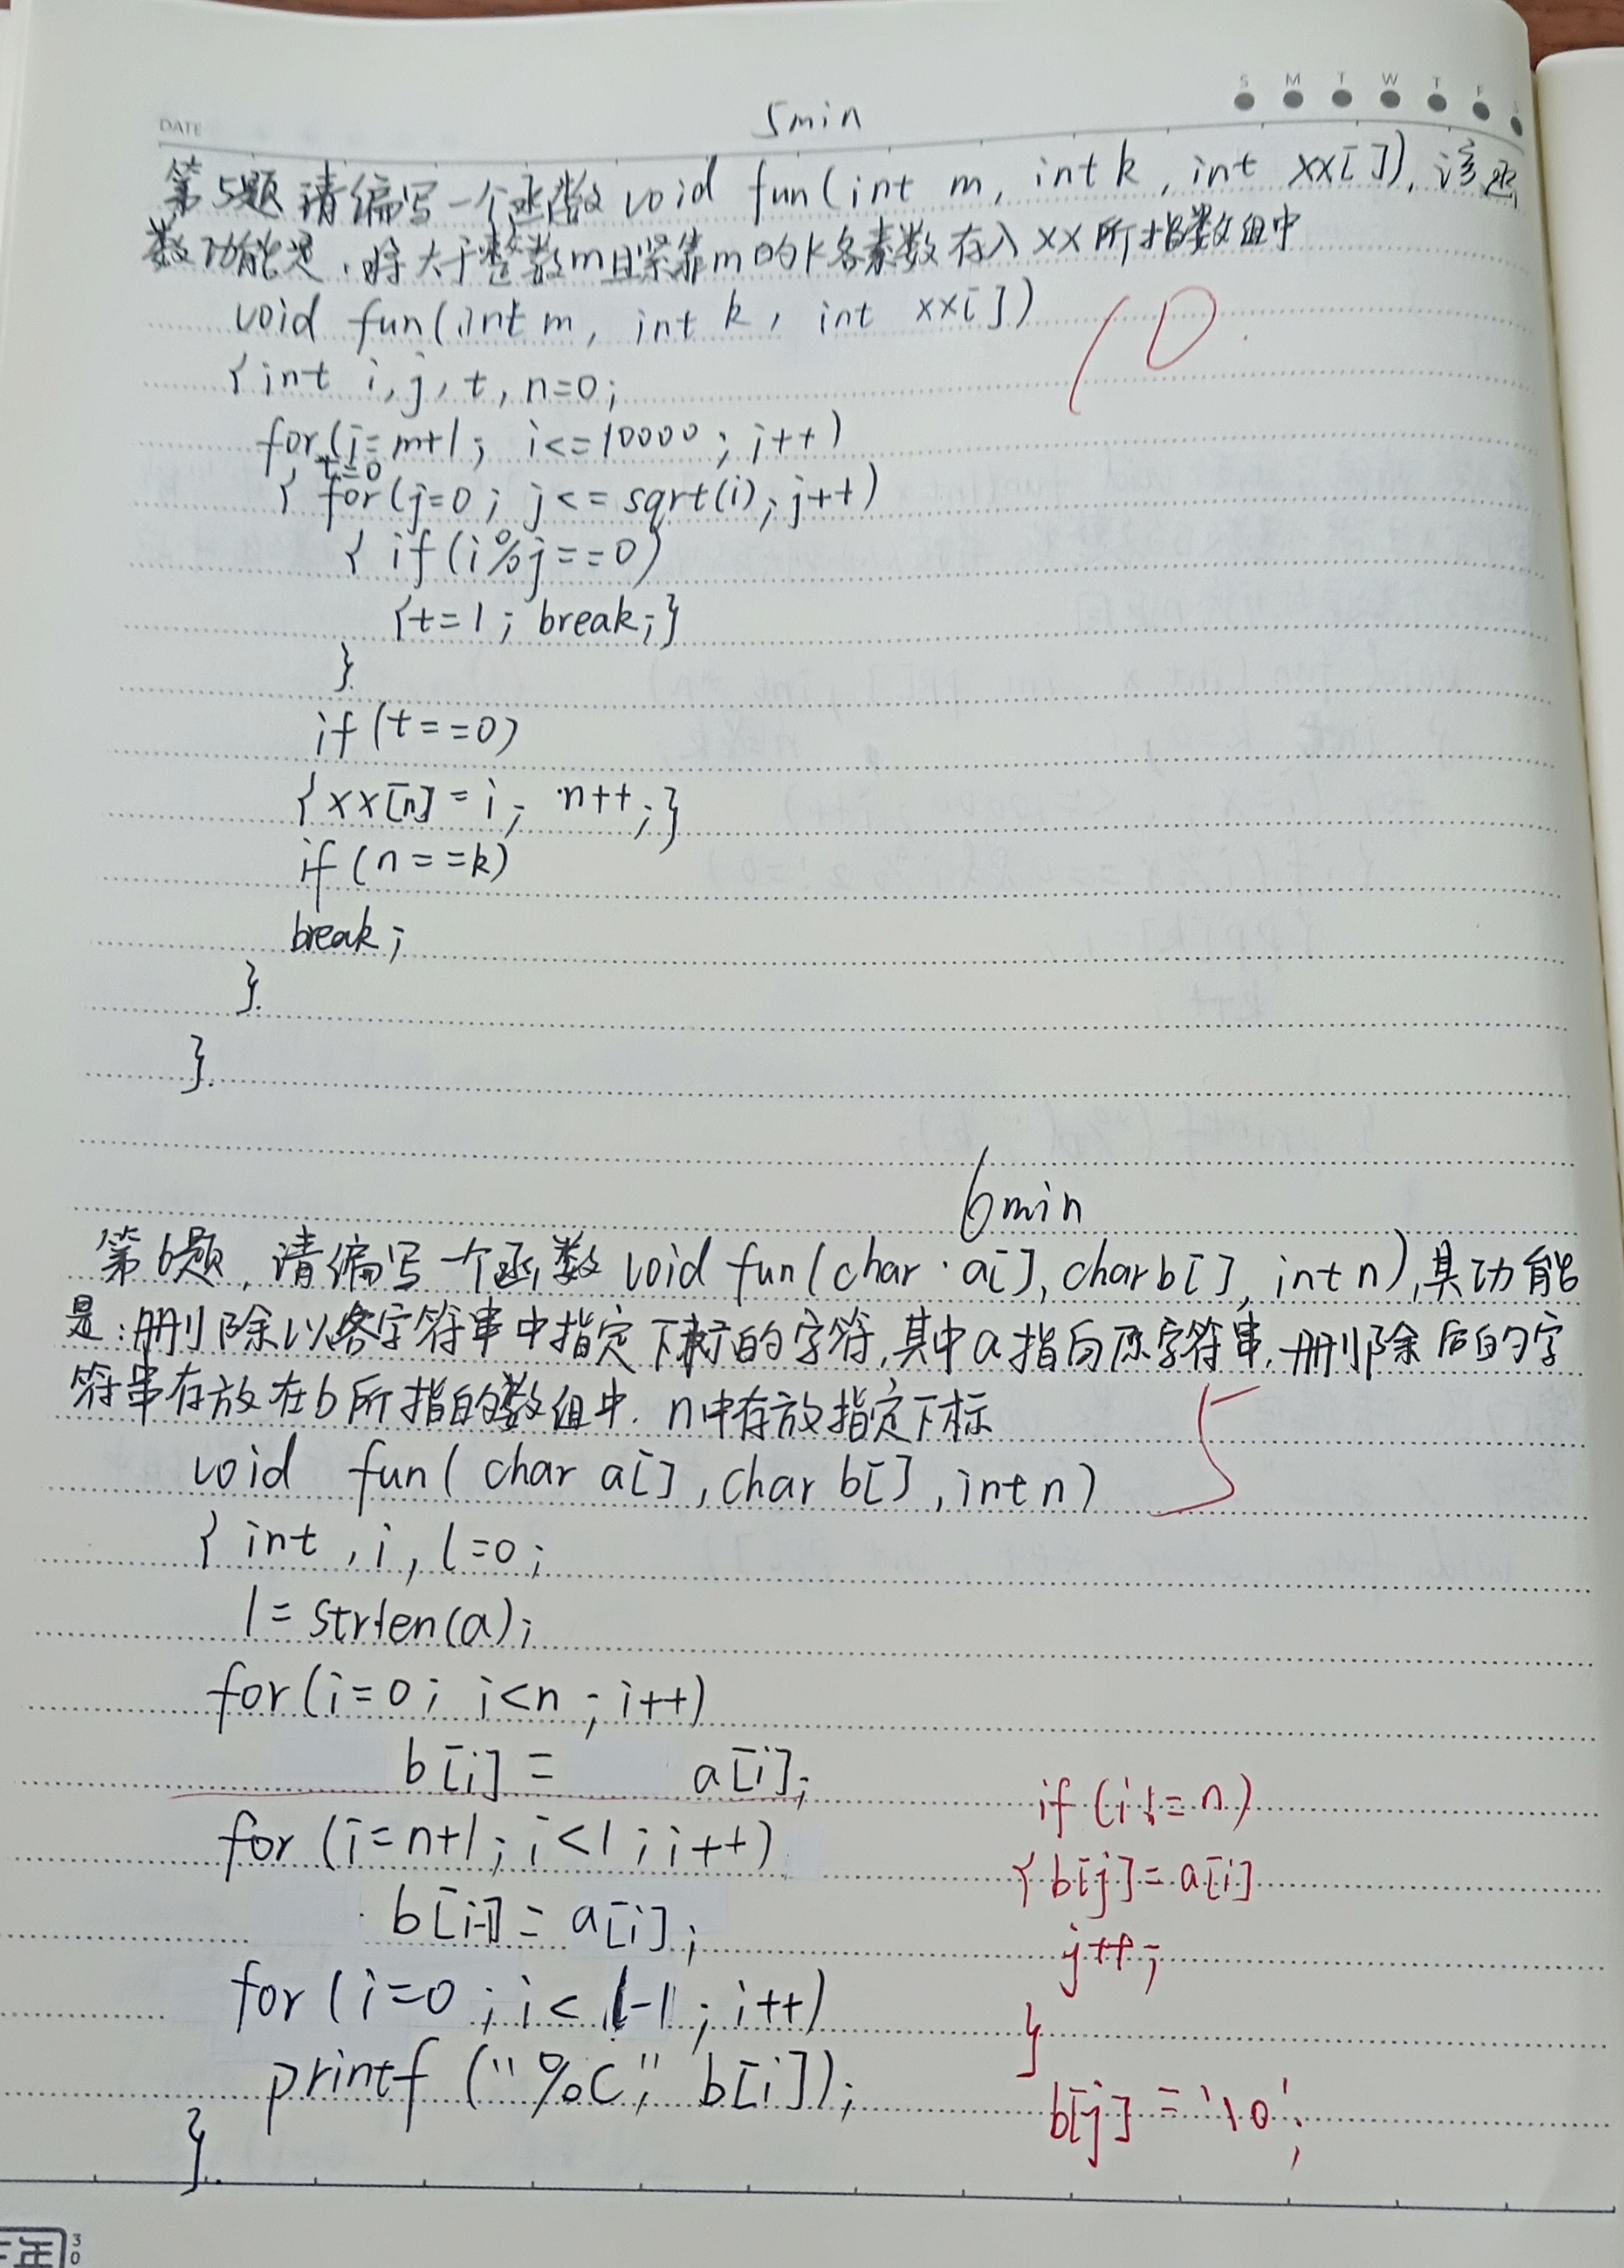 S M T W T F S
DATE
5min
第5题 请编写一个函数 void fun(int m, int k, int xx[]), 该函
数功能是, 将大于整数m且紧靠m的k各素数存入xx所指数组中
void fun(int m, int k, int xx[])
10.
{int i, j, t, n=0;
for(i=m+1; i<=10000; i++)
t=0
{ for(j=0; j<=sqrt(i); j++)
{ if(i%j==0)
{t=1; break;}
}
if(t==0)
{xx[n]=i; n++;}
if(n==k)
break;
}
}
6min
第6题, 请编写一个函数 void fun(char a[], char b[], int n), 其功能
是:删除以各字符串中指定下标的字符,其中a指向原字符串,删除后的字
符串存放在b所指的数组中. n中存放指定下标
5
void fun(char a[], char b[], int n)
{ int, i, l=0;
l=strlen(a);
for(i=0; i<n; i++)
b[i]= a[i];
if(i!=n)
for(i=n+1; i<l; i++)
{b[j]=a[i]
b[i-1]=a[i];
j++;
for(i=0; i<l-1; i++)
}
printf("%c", b[i]);
b[j]='\0';
}
三年 30